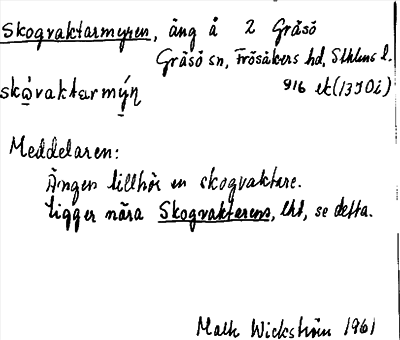 Skogvaktarmyren, äng å 2 Gräsö
Gräsö sn, Frösåkers hd, Sthlms l.
916 ek (13I0i)
skóvaktarmýṇ
Meddelaren:
Ängen tillhör en skogvaktare.
Ligger nära Skogvaktarens, lht, se detta.
Math Wickström 1961